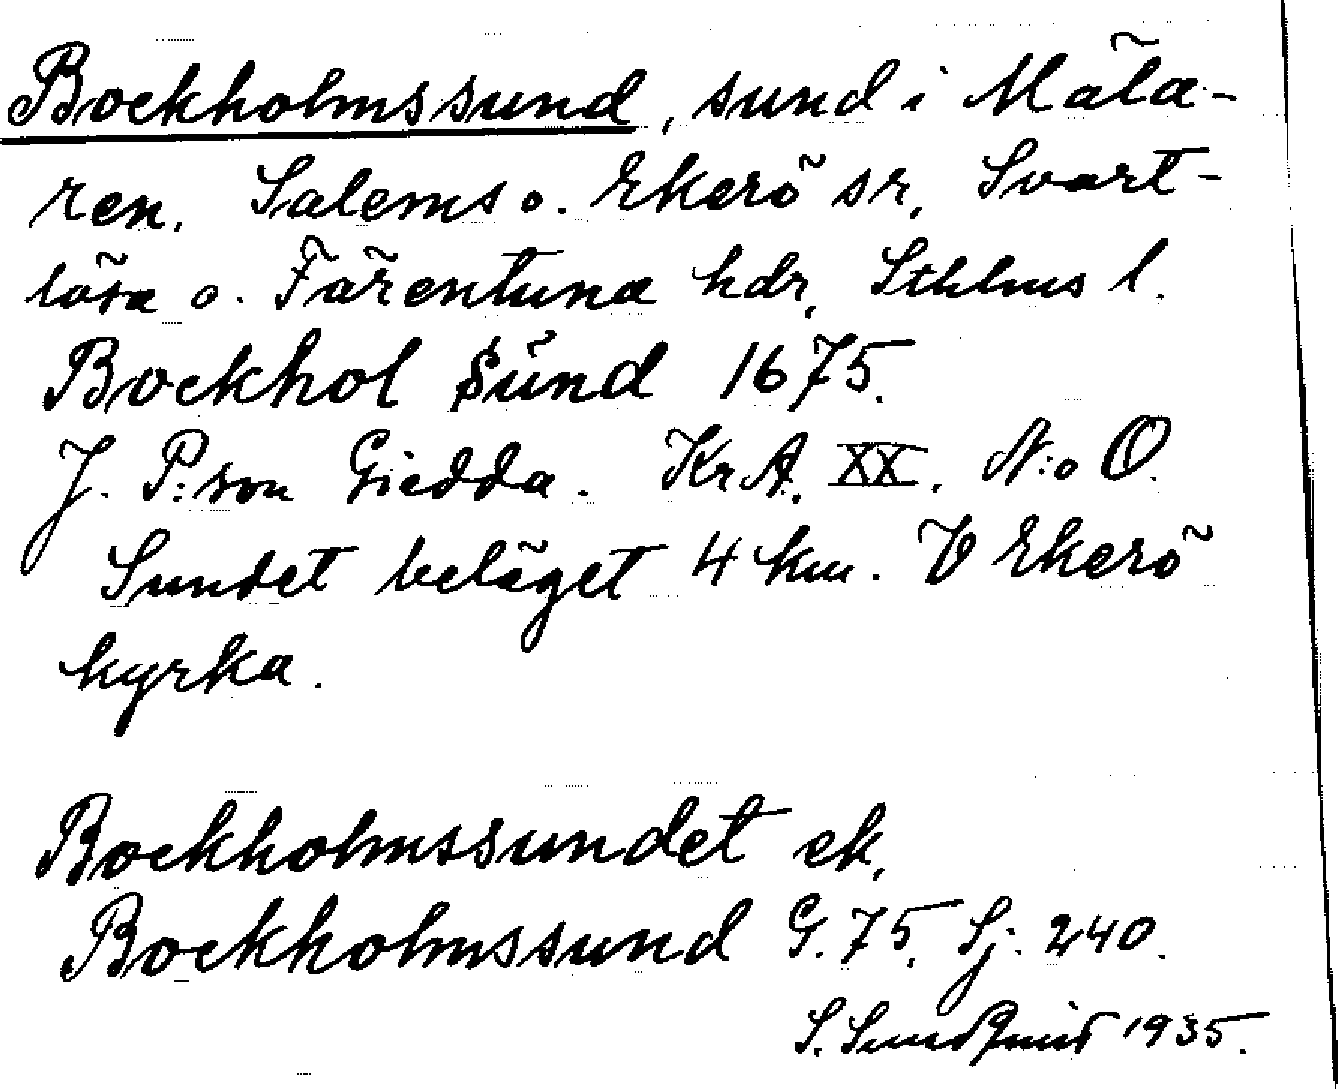 Bockholmssund, sund i Mäla-
ren. Salems o. Ekerö sr, Svart-
lösa o. Färentuna hdr, Sthlms l.
Bockhol Sŭnd 1675.
J. P:son Giedda. KrA. XX. N:o O.
Sundet beläget 4 km. V Ekerö
kyrka.
Bockholmssundet ek,
Bockholmssund G. 75, Sj. 240.
S. Sundquist 1935.